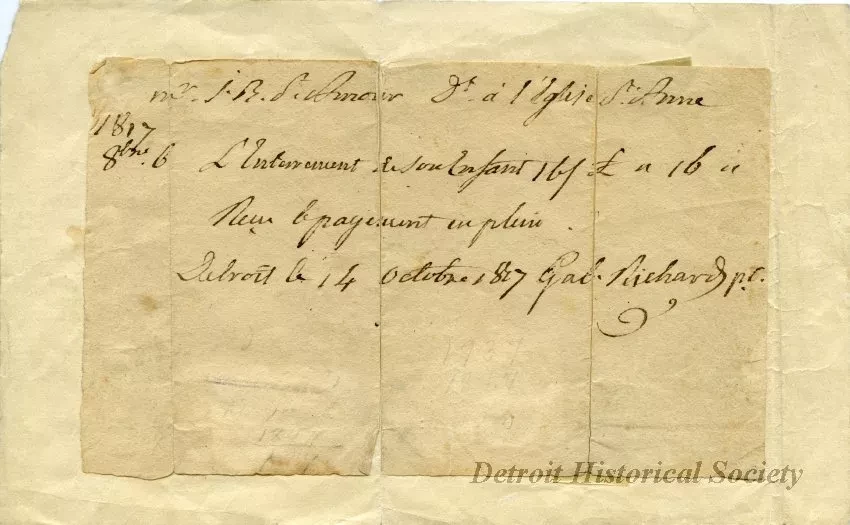 mr. J. B. St. Amour Dt. à l'Eglise St. Anne
1817
8bre. 6 L'Enterrement de son Enfant 16s £ " 16 "
Reçu le payement en plein.
Detroit le 14 Octobre 1817 Gab. Richard pt.
Detroit Historical Society